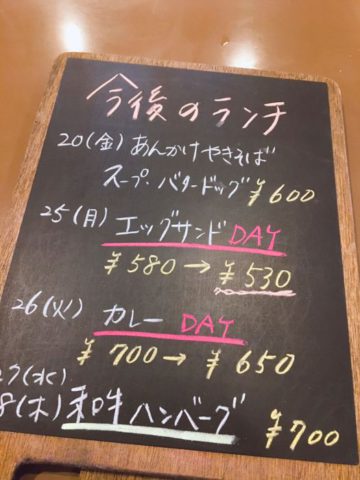 今後のランチ
20(金)あんかけやきそば
スープ・バタードッグ ¥600
25(月)エッグサンドDAY
¥580→¥530
26(火)カレーDAY
¥700→¥650
27(水)
8(木)和味ハンバーグ ¥700